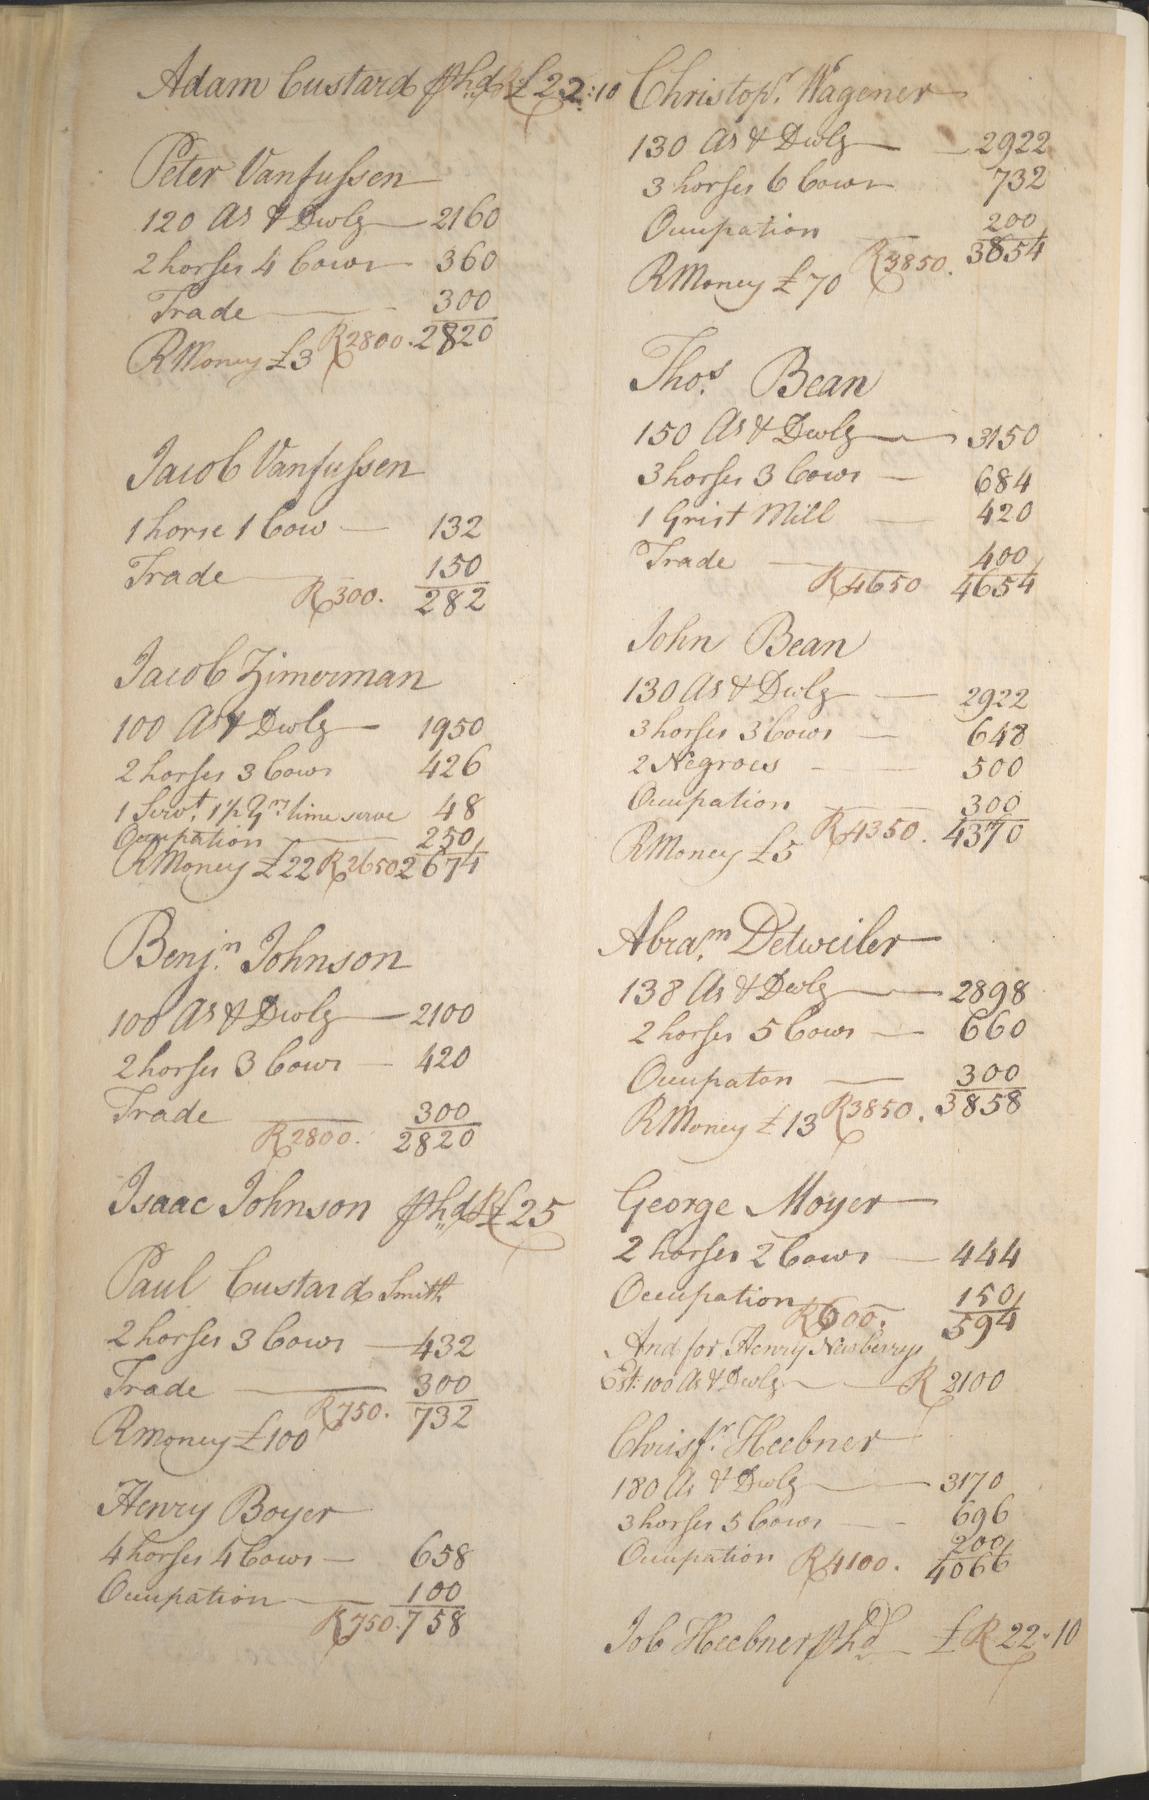 Adam Custard p hd R £22:10
Peter Vanfussen
120 As & Dwlg 2160
2 horses 4 Cows 360
Trade 300
R2800. 2820
RMoney £3
Jacob Vanfussen
1 horse 1 Cow 132
Trade 150
R300. 282
Jacob Zimerman
100 As & Dwlg 1950
2 horses 3 Cows 426
1 Servt. 1½ Yrs time serve 48
Occupation 250
RMoney £22 R2650 2674
Benj.n Johnson
100 As & Dwlg 2100
2 horses 3 Cows 420
Trade 300
R2800. 2820
Isaac Johnson p hd R £25
Paul Custard Smith
2 horses 3 Cows 432
Trade 300
R750. 732
Rmoney £100
Henry Boyer
4 horses 4 Cows 658
Occupation 100
R750. 758
Christopr. Wagener
130 As & Dwlg 2922
3 horses 6 Cows 732
Occupation 200
R3850. 3854
RMoney £70
Thos. Bean
150 As & Dwlg 3150
3 horses 3 Cows 684
1 Grist Mill 420
Trade 400
R4650 4654
John Bean
130 As & Dwlg 2922
3 horses 3 Cows 648
2 Negroes 500
Occupation 300
R4350. 4370
RMoney £5
Abram. Detweiler
138 As & Dwlg 2898
2 horses 5 Cows 660
Occupaton 300
R3850. 3858
RMoney £13
George Moyer
2 horses 2 Cows 444
Occupation 150
R600. 594
And for Henry Newberrys
Est: 100 As & Dwlg R 2100
Chrisr. Heebner
180 As & Dwlg 3170
3 horses 5 Cows 696
Occupation 200
R4100. 4066
Job Heebner p hd £ R 22"10